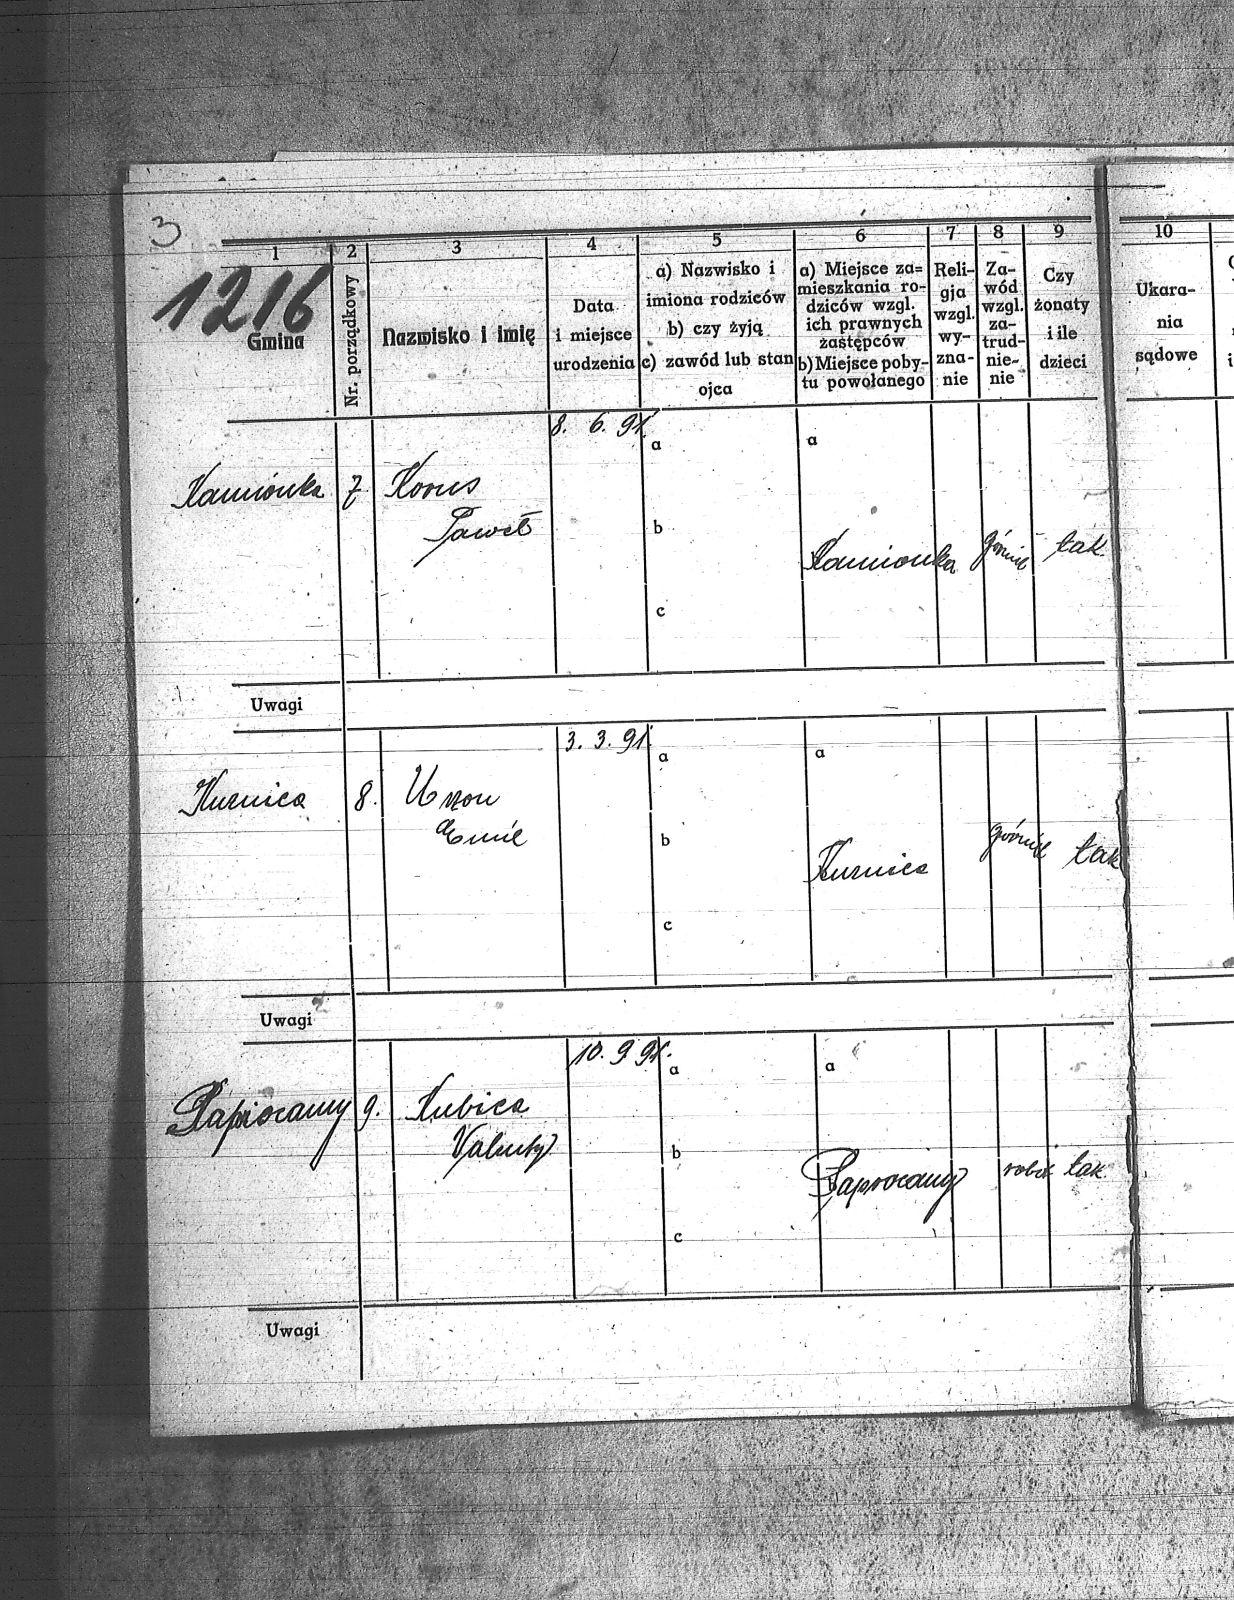 3
1216
1 2 3 4 5 6 7 8 9 10
Gmina
Nr. porządkowy
Nazwisko i imię
Data
i miejsce
urodzenia
a) Nazwisko i
imiona rodziców
b) czy żyją
c) zawód lub stan
ojca
a) Miejsce za=
mieszkania ro-
dziców wzgl.
ich prawnych
zastępców
b) Miejsce poby-
tu powołanego
Reli-
gja
wzgl.
wy-
zna-
nie
Za-
wód
wzgl.
za-
trud-
nie-
nie
Czy
żonaty
i ile
dzieci
Ukara-
nia
sądowe
8. 6. 91.
a a
Kamionka 7 Korus
Paweł
b
Kamionka górnik tak
c
Uwagi
3. 3. 91.
a a
Kuźnica 8.
Emil
b
Kuźnica górnik tak
c
Uwagi
10. 9 91.
a a
Paprocany 9. Kubica
Walenty
b
Paprocany robot tak
c
Uwagi